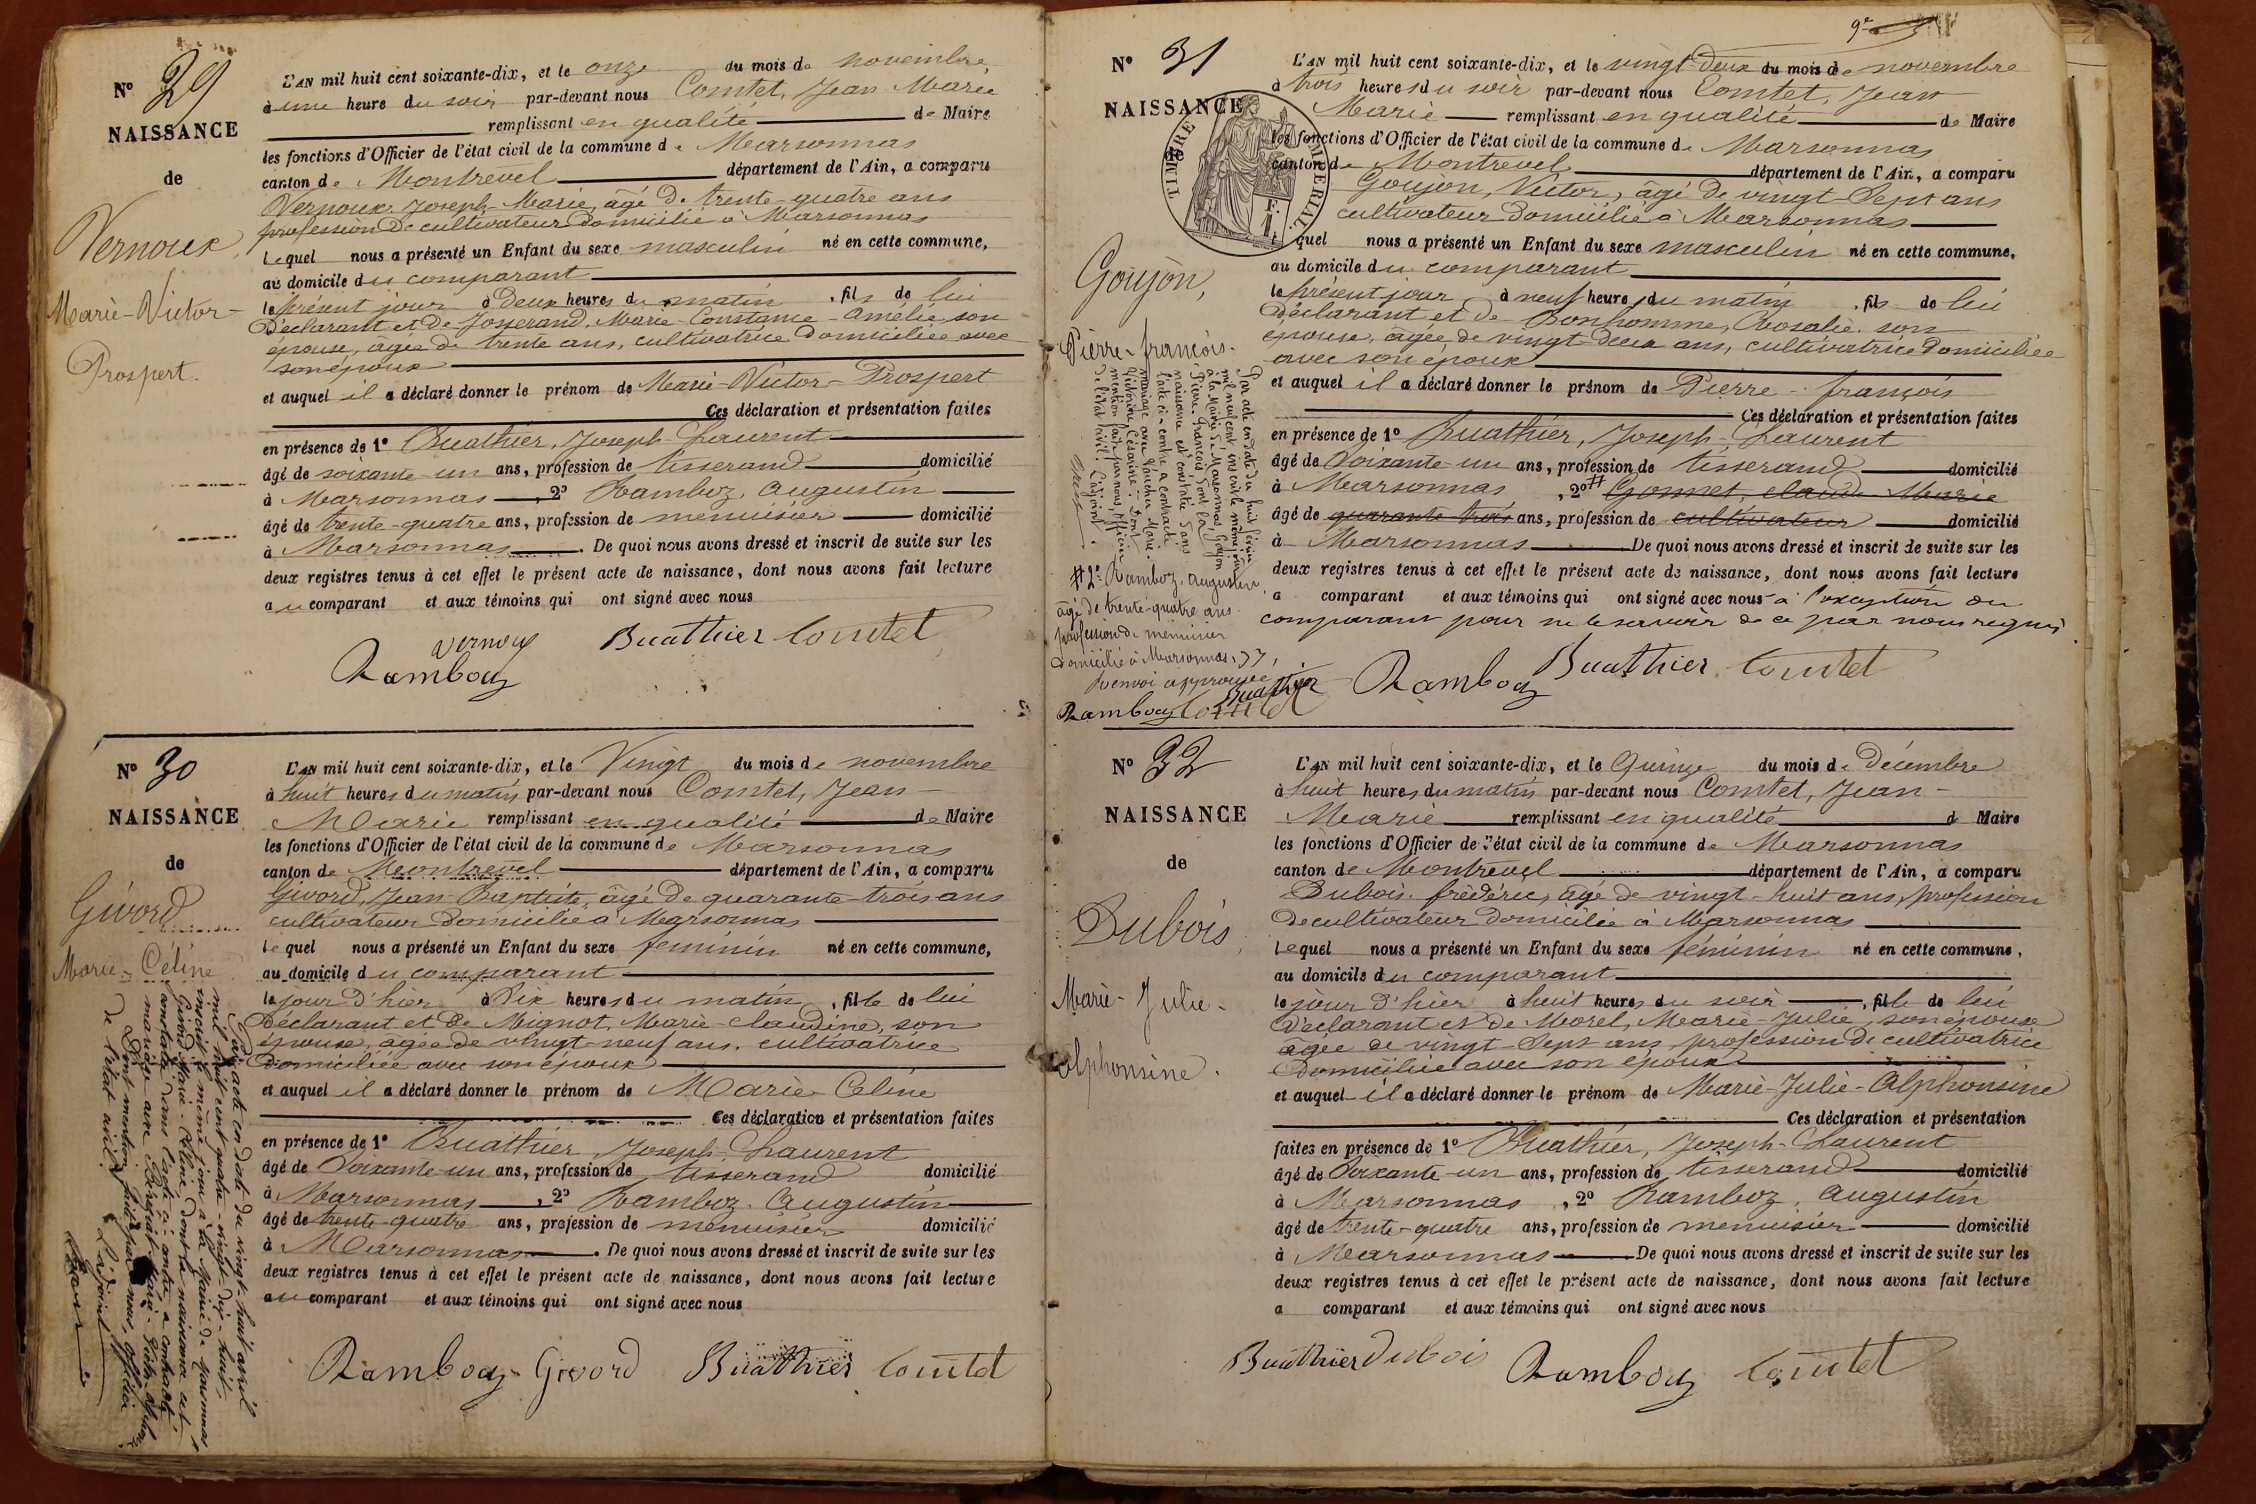 N° 29
NAISSANCE
de
Vernoux
Marie-Victor-
Prospert.
L'AN mil huit cent soixante-dix, et le onze du mois de novembre
à une heure du soir par-devant nous Comtet, Jean Marie
remplissant en qualité de Maire
les fonctions d'Officier de l'état civil de la commune de Marsonnas
canton de Montrevel département de l'Ain, a comparu
Vernoux, Joseph-Marie, âgé de trente-quatre ans
profession de cultivateur domicilié à Marsonnas
lequel nous a présenté un Enfant du sexe masculin né en cette commune,
au domicile du comparant
le présent jour à deux heures du matin, fils de lui
déclarant et de Josserand, Marie Constance-Amélie, son
épouse, âgée de trente ans, cultivatrice domiciliée avec
son époux
et auquel il a déclaré donner le prénom de Marie-Victor-Prospert
Ces déclaration et présentation faites
en présence de 1° Buathier, Joseph-Laurent
âgé de soixante-un ans, profession de tisserand domicilié
à Marsonnas, 2° Ramboz, Augustin
âgé de trente-quatre ans, profession de menuisier domicilié
à Marsonnas. De quoi nous avons dressé et inscrit de suite sur les
deux registres tenus à cet effet le présent acte de naissance, dont nous avons fait lecture
au comparant et aux témoins qui ont signé avec nous
Vernoux Buathier Comtet
Ramboz
N° 30
NAISSANCE
de
Givord
Marie-Céline
Par acte en date du vingt-huit avril
mil huit cent quatre-vingt-dix-huit,
inscrit le même jour à la Mairie de Marsonnas
Givord Marie-Céline, dont la naissance est
constatée dans l'acte ci-contre a contracté
mariage avec
Dont mention faite par nous, officier
de l'état civil,
L'adjoint
L'AN mil huit cent soixante-dix, et le Vingt du mois de novembre
à huit heures du matin par-devant nous Comtet, Jean-
Marie remplissant en qualité de Maire
les fonctions d'Officier de l'état civil de la commune de Marsonnas
canton de Montrevel département de l'Ain, a comparu
Givord, Jean-Baptiste, âgé de quarante-trois ans
cultivateur domicilié à Marsonnas
lequel nous a présenté un Enfant du sexe féminin né en cette commune,
au domicile du comparant
le jour d'hier à dix heures du matin, fille de lui
déclarant et de Mignot, Marie-Claudine, son
épouse, âgée de vingt-neuf ans, cultivatrice
domiciliée avec son époux
et auquel il a déclaré donner le prénom de Marie-Céline
Ces déclaration et présentation faites
en présence de 1° Buathier, Joseph-Laurent
âgé de soixante-un ans, profession de tisserand domicilié
à Marsonnas, 2° Ramboz, Augustin
âgé de trente-quatre ans, profession de menuisier domicilié
à Marsonnas. De quoi nous avons dressé et inscrit de suite sur les
deux registres tenus à cet effet le présent acte de naissance, dont nous avons fait lecture
au comparant et aux témoins qui ont signé avec nous
Ramboz Givord Buathier Comtet
9e
N° 31
NAISSANCE
de
TIMBRE IMPÉRIAL
Goujon,
Pierre-françois.
Par acte en date du huit
mil neuf cent inscrit le même jour
à la Mairie de Marsonnas, Goujon
Pierre-François dont la
naissance est constatée dans
l'acte ci-contre a contracté
mariage avec Marie
Victorine Césarine. Dont
mention faite par nous, officier
de l'état civil. L'adjoint.
# 2° Ramboz, Augustin
âgé de trente-quatre ans
profession de menuisier
domicilié à Marsonnas,
Renvoi approuvé
Buathier
Ramboz Comtet
L'AN mil huit cent soixante-dix, et le vingt-deux du mois de novembre
à trois heures du soir par-devant nous Comtet, Jean
Marie remplissant en qualité de Maire
les fonctions d'Officier de l'état civil de la commune de Marsonnas
canton de Montrevel département de l'Ain, a comparu
Goujon, Victor, âgé de vingt-sept ans
cultivateur domicilié à Marsonnas
lequel nous a présenté un Enfant du sexe masculin né en cette commune,
au domicile du comparant
le présent jour, à neuf heures du matin, fils de lui
déclarant et de Bonhomme, Rosalie, son
épouse, âgée de vingt-deux ans, cultivatrice domiciliée
avec son époux
et auquel il a déclaré donner le prénom de Pierre-françois
Ces déclaration et présentation faites
en présence de 1° Buathier, Joseph-Laurent
âgé de soixante-un ans, profession de tisserand domicilié
à Marsonnas, 2° # Gonnet, claude-Marie
âgé de quarante-trois ans, profession de cultivateur domicilié
à Marsonnas De quoi nous avons dressé et inscrit de suite sur les
deux registres tenus à cet effet le présent acte de naissance, dont nous avons fait lecture
a comparant et aux témoins qui ont signé avec nous à l'exception du
comparant pour ne le savoir de ce par nous requis
Ramboz Buathier Comtet
N° 32
NAISSANCE
de
Dubois,
Marie-Julie-
Alphonsine.
L'AN mil huit cent soixante-dix, et le Quinze du mois de Décembre
à huit heures du matin par-devant nous Comtet, Jean-
Marie remplissant en qualité d Maire
les fonctions d'Officier de l'état civil de la commune de Marsonnas
canton de Montrevel département de l'Ain, a comparu
Dubois, frédéric, âgé de vingt-huit ans, profession
de cultivateur domicilié à Marsonnas
lequel nous a présenté un Enfant du sexe féminin né en cette commune,
au domicile du comparant
le jour d'hier à huit heures du soir, fille de lui
déclarant et de Morel, Marie-Julie, son épouse
âgée de vingt-sept ans, profession de cultivatrice
domiciliée avec son époux
et auquel il a déclaré donner le prénom de Marie-Julie-Alphonsine
Ces déclaration et présentation
faites en présence de 1° Buathier, Joseph-Laurent
âgé de soixante-un ans, profession de tisserand domicilié
à Marsonnas, 2° Ramboz, Augustin
âgé de trente-quatre ans, profession de menuisier domicilié
à Marsonnas De quoi nous avons dressé et inscrit de suite sur les
deux registres tenus à cet effet le présent acte de naissance, dont nous avons fait lecture
a comparant et aux témoins qui ont signé avec nous
Buathier Dubois Ramboz Comtet